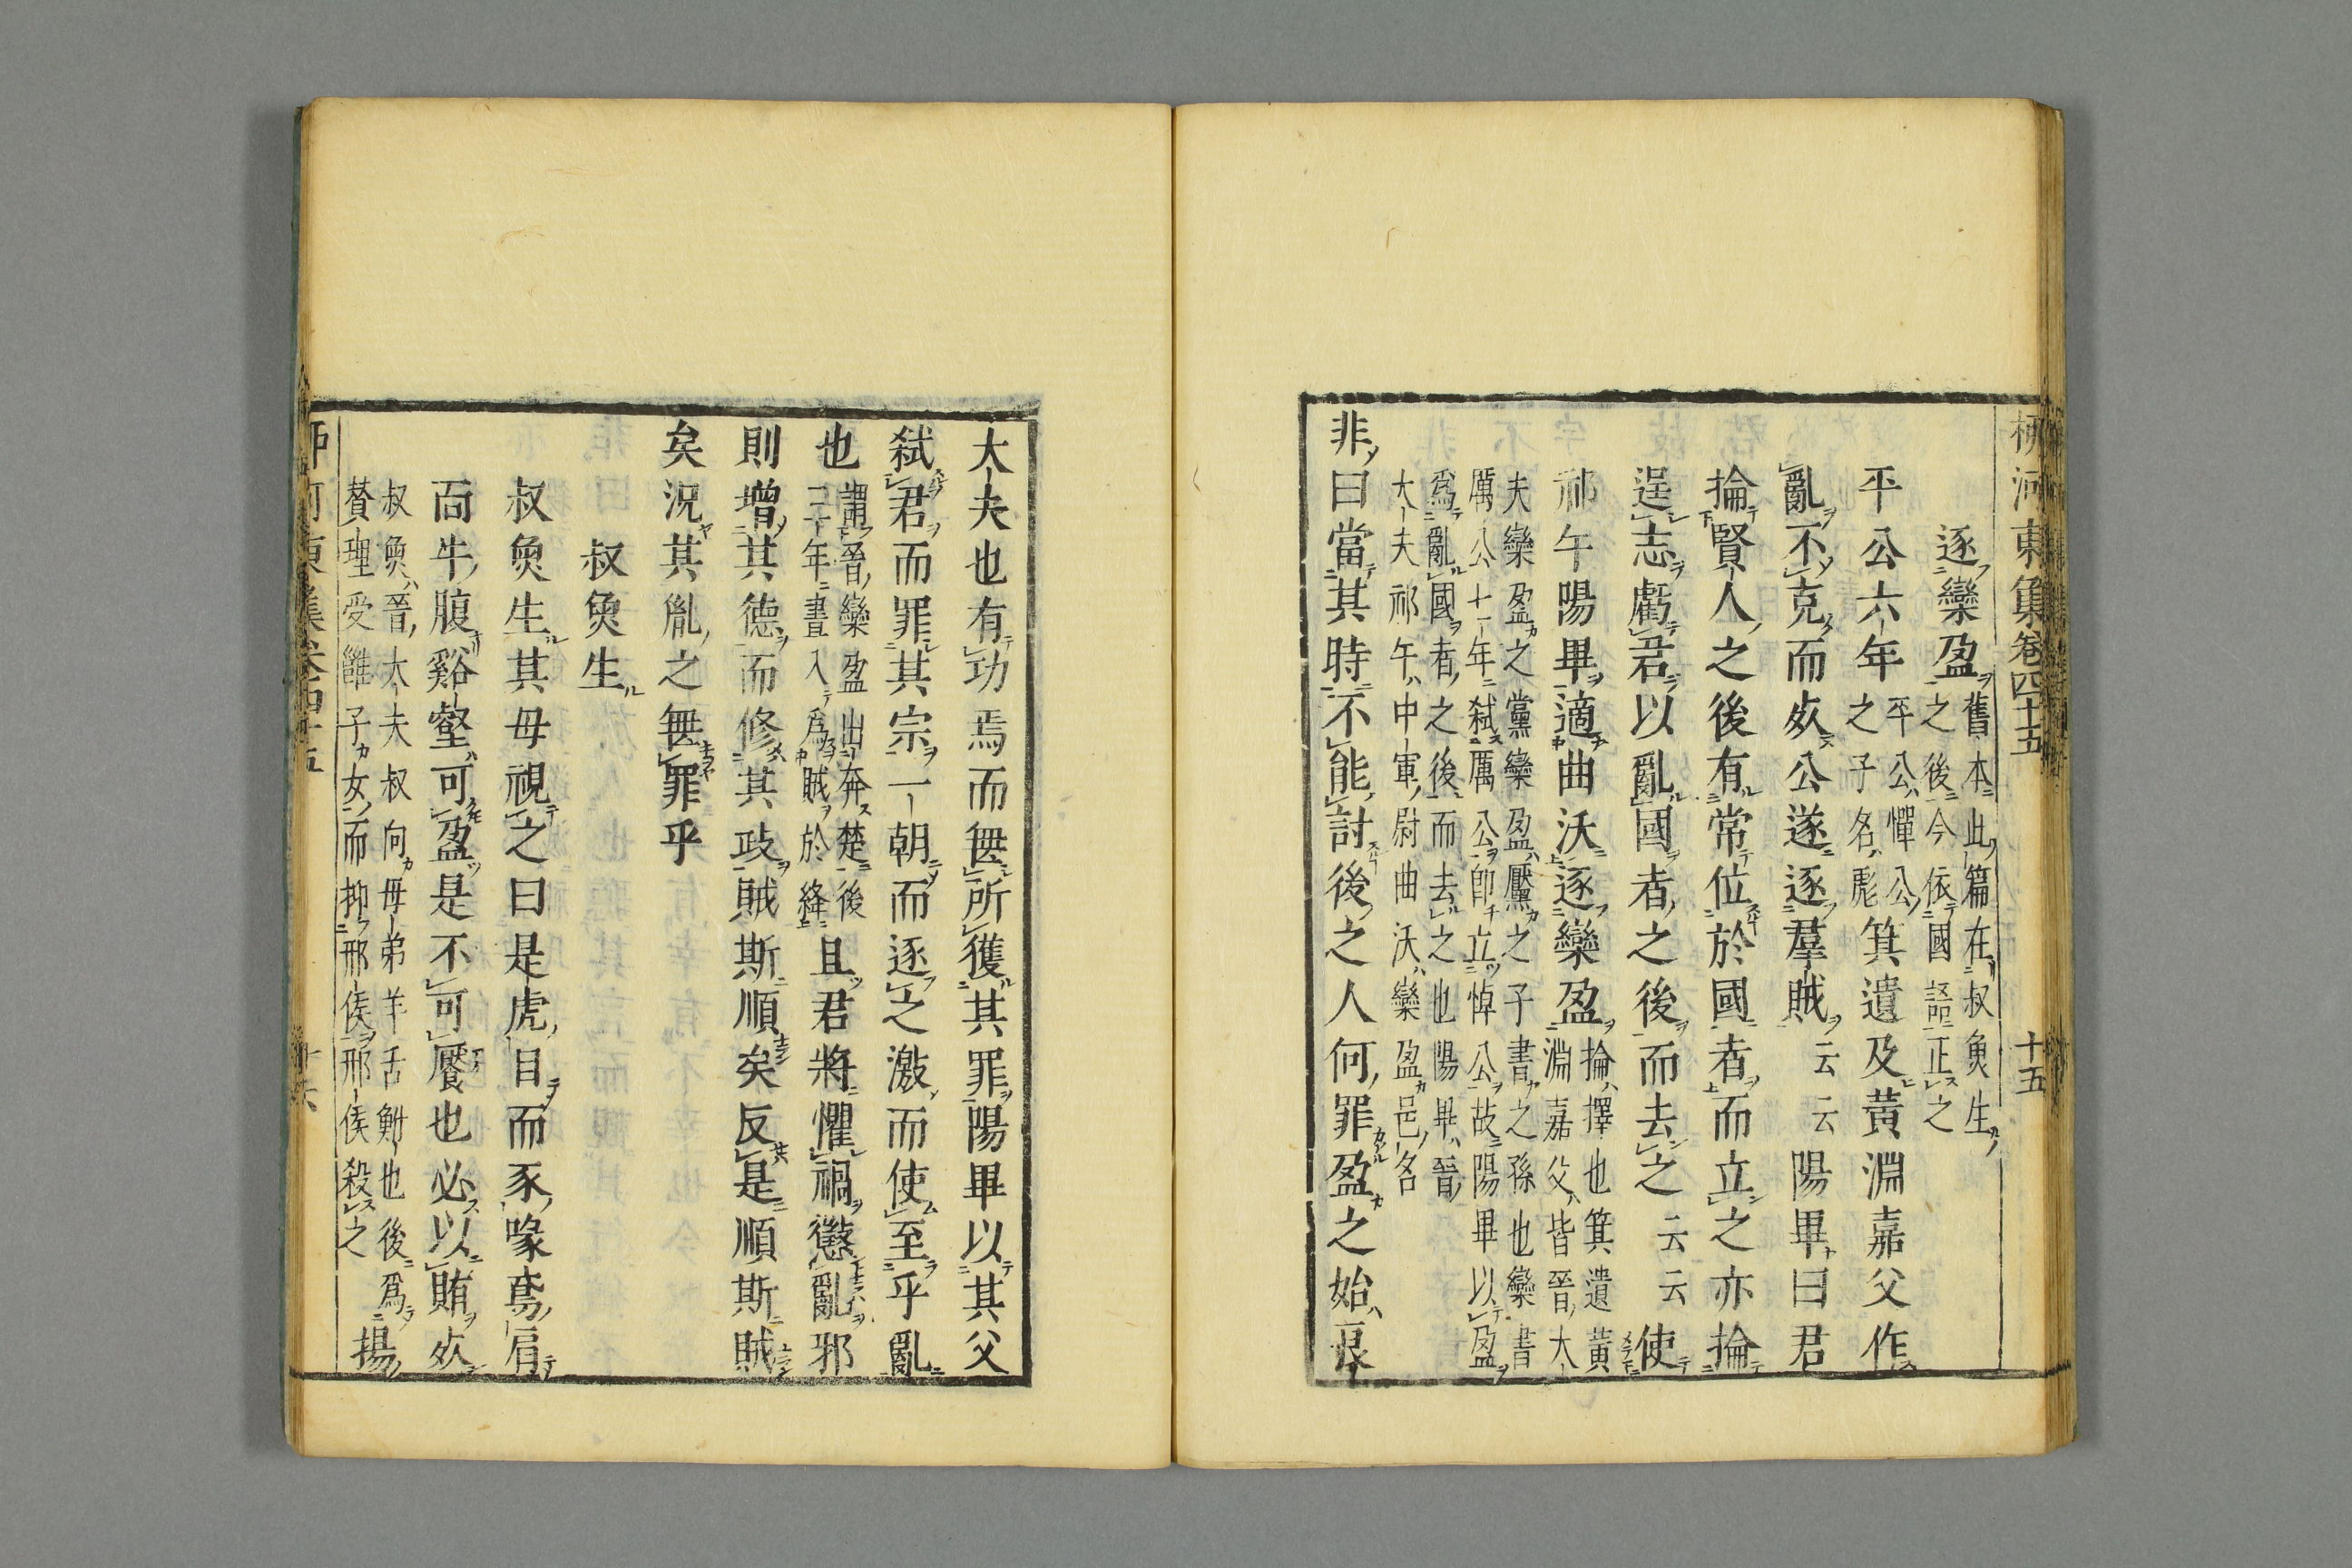 柳河東集卷四十五 十五
逐欒盈 舊本此篇在叔魚生
之後今依國語正之
平公六年 平公悼公
之子名彪 箕遺及黃淵嘉父作
亂不克而死公遂逐羣賊云云陽畢曰君
掄賢人之後有常位於國者而立之亦掄
逞志虧君以亂國者之後而去之云云使
祁午陽畢適曲沃逐欒盈 掄擇也箕遺黃
淵嘉父皆晉大
夫欒盈之黨欒盈黶之子書之孫也欒書
厲公十一年弑厲公卽立悼公故陽畢以盈
爲亂國者之後而去之也陽畢晉
大夫祁午中軍尉曲沃欒盈邑名
非曰當其時不能討後之人何罪盈之始良
大夫也有功焉而無所獲其罪陽畢以其父
弑君而罪其宗一朝而逐之激而使至乎亂
也 謂晉欒盈出奔楚後
二十年晝入爲賊於絳 且君將懼禍懲亂邪
則增其德而修其政賊斯順矣反是順斯賊
矣況其胤之無罪乎
叔魚生
叔魚生其母視之曰是虎目而豕喙鳶肩
而牛腹谿壑可盈是不可饜也必以賄死
叔魚晉大夫叔向母弟羊舌鮒也後爲
贊理受雝子女而抑邢侯邢侯殺之 揚
河東集卷四十五 十六